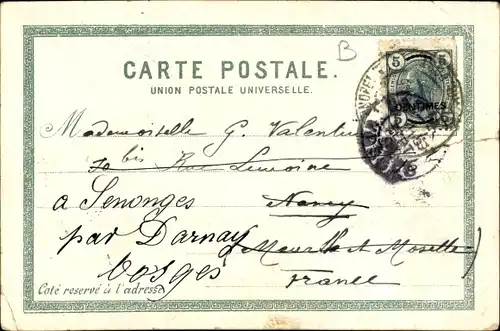 B
5 5
CENTIMES
CARTE POSTALE.
UNION POSTALE UNIVERSELLE.
Mademoiselle G. Valentin
70 bis Rue Lemoine
à Senonges Nancy
par Darnay (Meurthe et Moselle)
Vosges France
Coté reservé à l'adresse